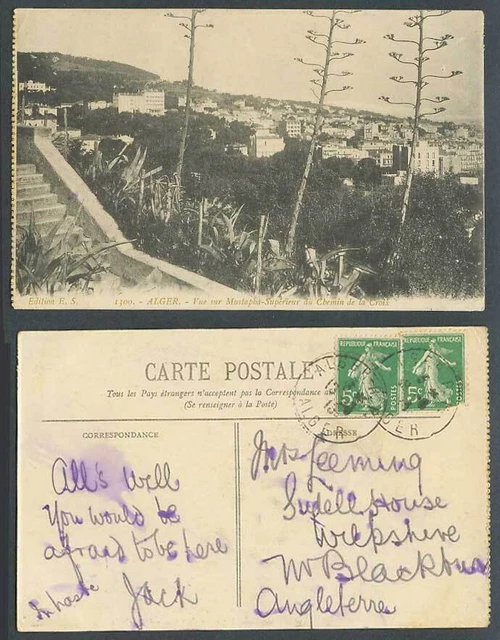 Edition E. S. 1300. - ALGER. - Vue sur Mustapha-Supérieur du Chemin de la Croix
CARTE POSTALE
Tous les Pays étrangers n'acceptent pas la Correspondance a
(Se renseigner à la Poste)
REPUBLIQUE FRANÇAISE
5c
POSTES
REPUBLIQUE FRANÇAISE
5c
POSTES
ALGER
ALGER
CORRESPONDANCE
ADRESSE
All's well
You would be
afraid to be here
In haste Jack
Mrs Leeming
Sudell House
Wilpshire
Nr Blackburn
Angleterre